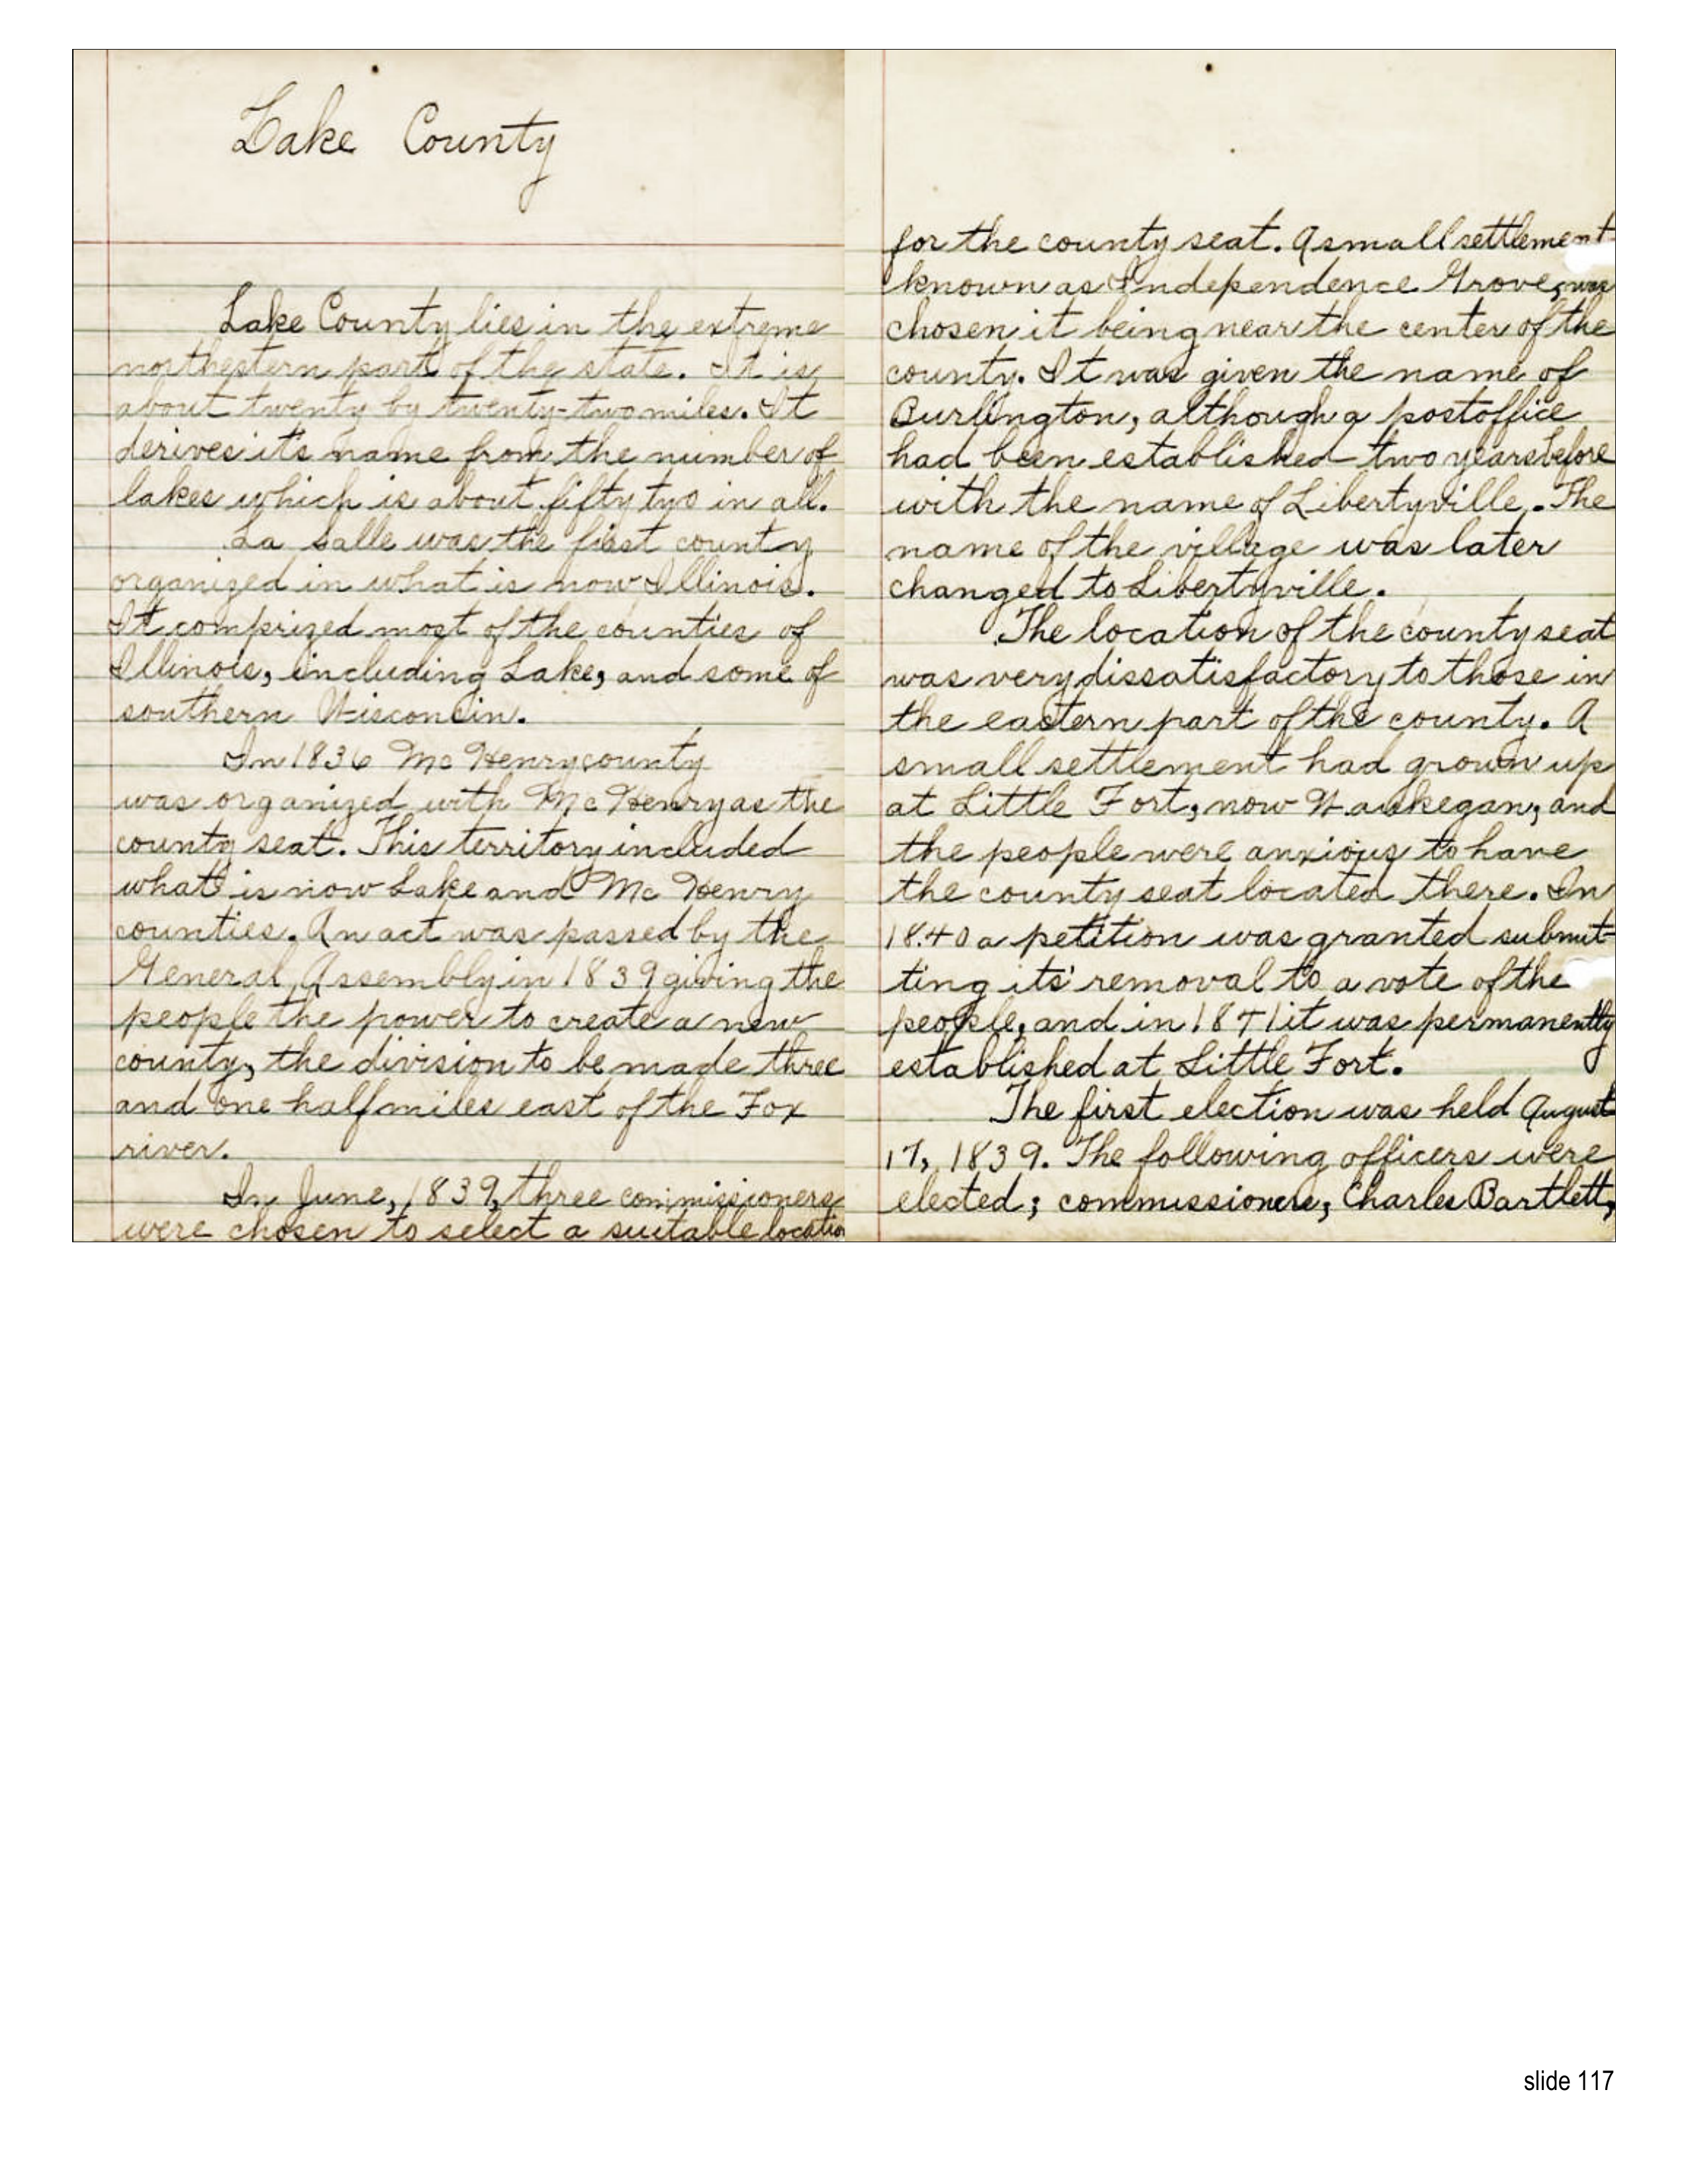 Lake County
Lake County lies in the extreme
northestern part of the state. It is
about twenty by twenty-two miles. It
derives it's name from the number of
lakes which is about fifty two in all.
La Salle was the first county
organized in what is now Illinois.
It comprized most of the counties of
Illinois, including Lake, and some of
southern Wisconsin.
In 1836 Mc Henry county
was organized with Mc Henry as the
county seat. This territory included
what is now Lake and Mc Henry
counties. An act was passed by the
General Assembly in 1839 giving the
people the power to create a new
county, the division to be made three
and one half miles east of the Fox
river.
In June, 1839, three commissioners
were chosen to select a suitable location
for the county seat. A small settlement
known as Independence Grove, was
chosen it being near the center of the
county. It was given the name of
Burlington, although a postoffice
had been established two years before
with the name of Libertyville. The
name of the village was later
changed to Libertyville.
The location of the county seat
was very dissatisfactory to those in
the eastern part of the county. A
small settlement had grown up
at Little Fort, now Waukegan, and
the people were anxious to have
the county seat located there. In
1840 a petition was granted submit-
ting its' removal to a vote of the
people, and in 1841 it was permanently
established at Little Fort.
The first election was held August
17, 1839. The following officers were
elected; commissioners, Charles Bartlett,
slide 117